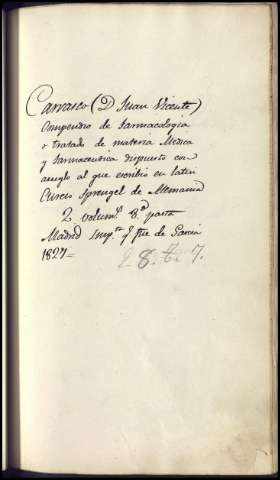 Carrasco (D. Juan Vicente)
Compendio de Farmacologia
o tratado de materia Medica
y farmaceutica dispuesto con
arreglo al que escribió en latin
Curcio Sprengel de Alemania
2 volum.s 8.º pasta
Madrid Imp.ta q. fue de Garcia
1827=
8. 7.